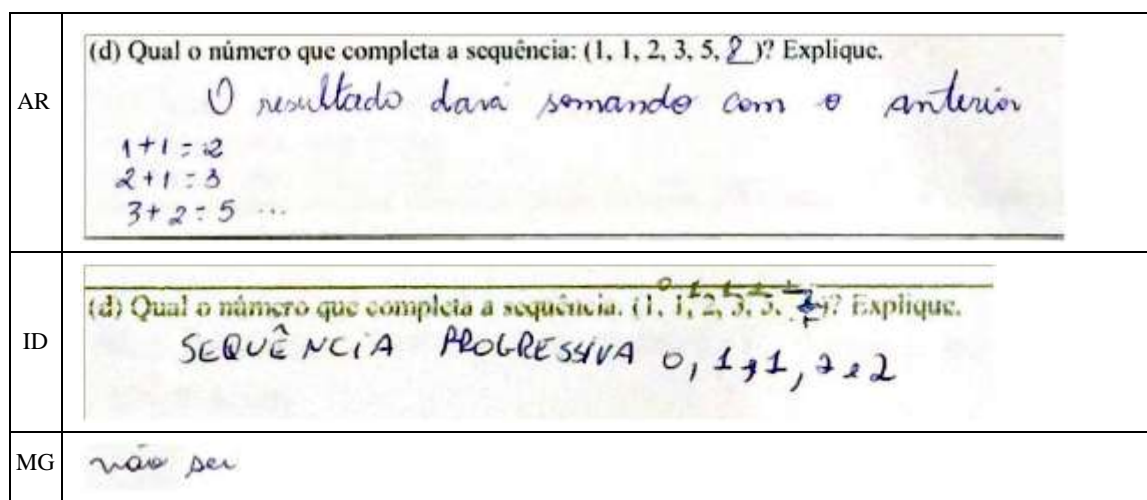 AR
(d) Qual o número que completa a sequência: (1, 1, 2, 3, 5, 8)? Explique.
O resultado dará somando com o anterior
1+1=2
2+1=3
3+2=5 ...
ID
(d) Qual o número que completa a sequência. (1, 1, 2, 3, 5, )? Explique.
SEQUÊNCIA PROGRESSIVA 0, 1, 1, 2 e 2
MG
não sei